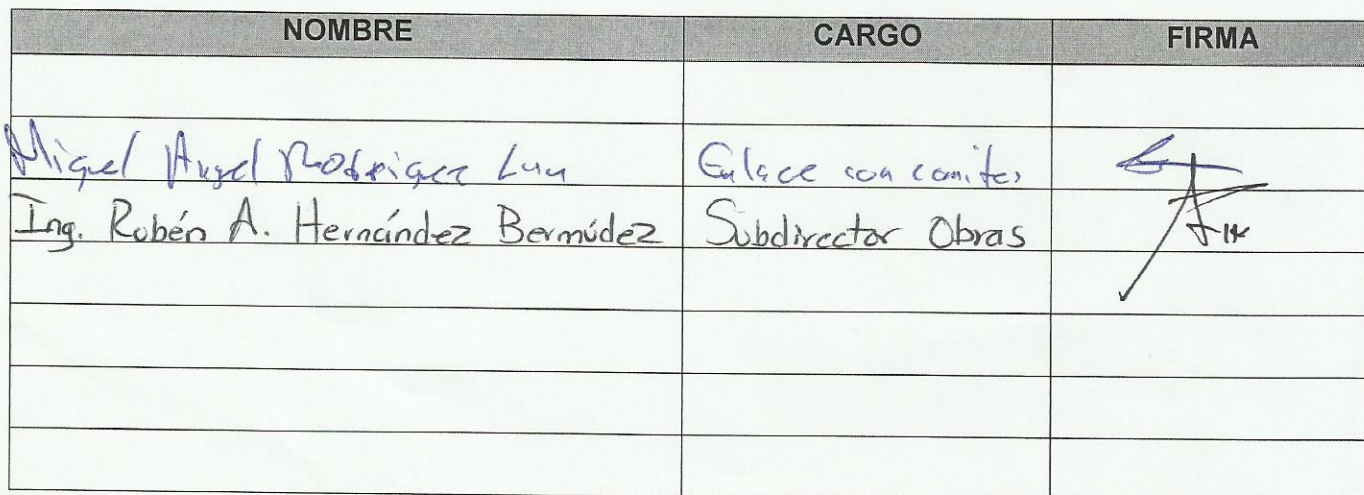 NOMBRE CARGO FIRMA
Miguel Angel Rodriguez Luu Enlace con comites
Ing. Rubén A. Hernández Bermúdez Subdirector Obras